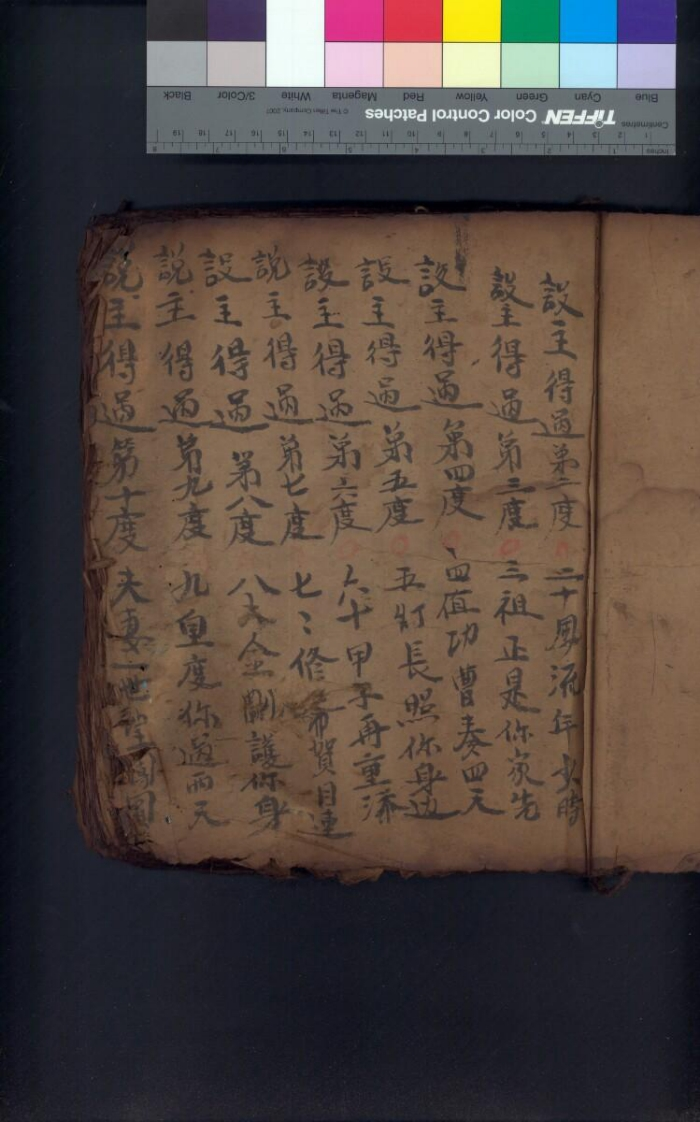 設主得過第二度 二十風流年少時
設主得過第三度 三祖正是你家先
設主得過第四度 四值功曹奏四天
設主得過第五度 五灯長照你身边
設主得過第六度 六十甲子再重添
說主得過第七度 七〻修斋賀目連
設主得過第八度 八大金剛護你身
說主得過第九度 九皇度你過兩天
說主得過第十度 夫妻一世
TIFFEN Color Control Patches
© The Tiffen Company, 2007
Centimetres
Inches
Blue Cyan Green Yellow Red Magenta White 3/Color Black
1 2 3 4 5 6 7 8 9 10 11 12 13 14 15 16 17 18 19
1 2 3 4 5 6 7 8